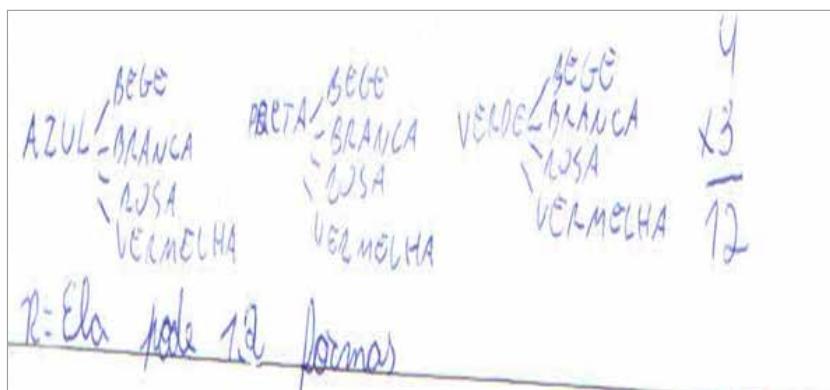 AZUL BEGE BRANCA ROSA VERMELHA
PRETA BEGE BRANCA ROSA VERMELHA
VERDE BEGE BRANCA ROSA VERMELHA
4
x3
12
R= Ela pode 12 formas